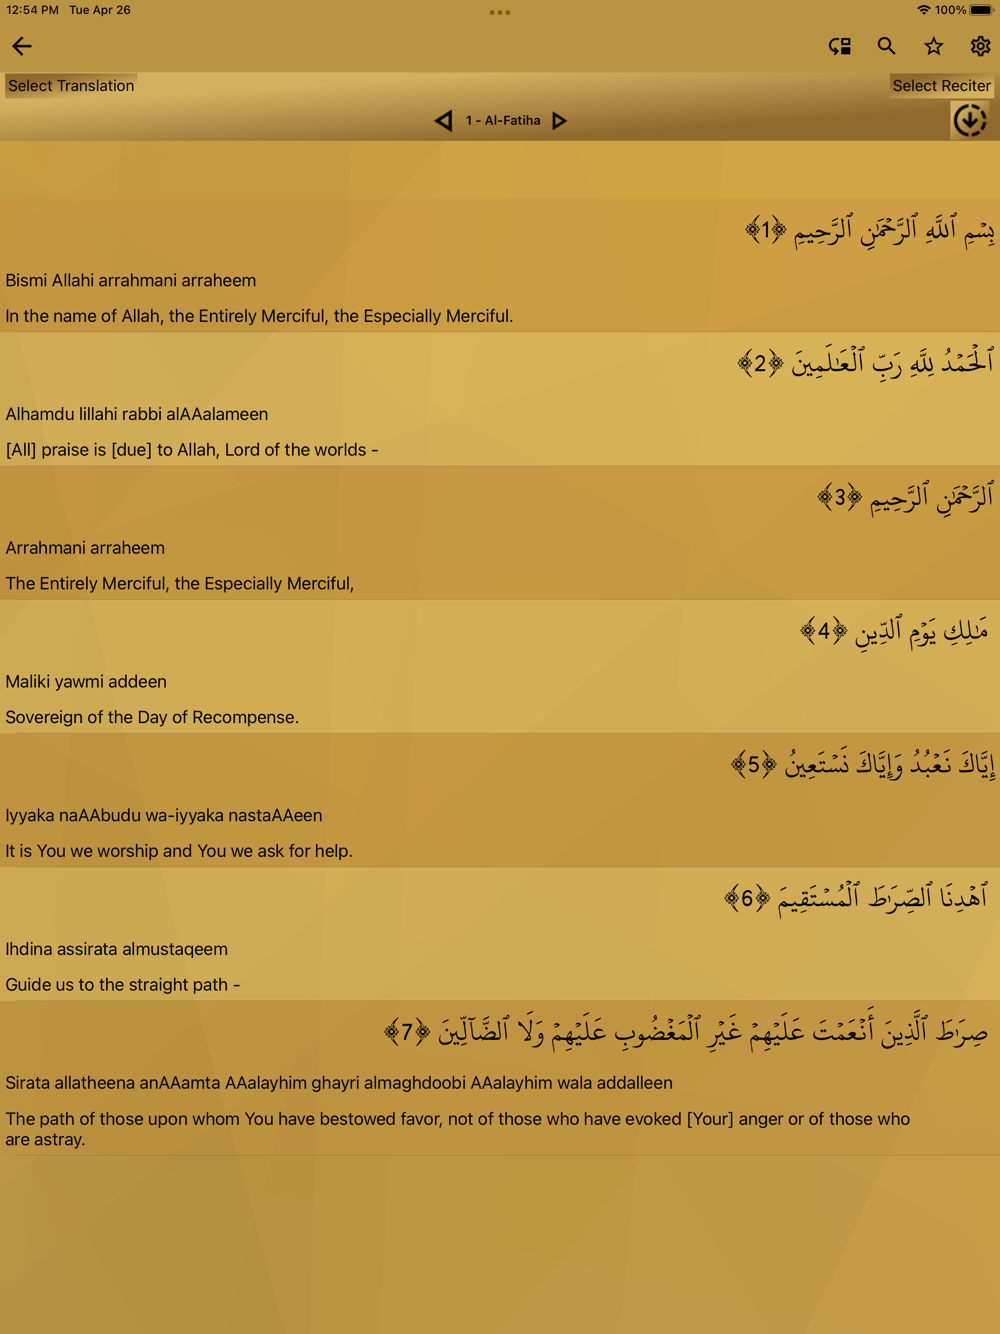 12:54 PM Tue Apr 26
100%
Select Translation
Select Reciter
1 - Al-Fatiha
بِسْمِ ٱللَّهِ ٱلرَّحْمَٰنِ ٱلرَّحِيمِ ﴿1﴾
Bismi Allahi arrahmani arraheem
In the name of Allah, the Entirely Merciful, the Especially Merciful.
ٱلْحَمْدُ لِلَّهِ رَبِّ ٱلْعَٰلَمِينَ ﴿2﴾
Alhamdu lillahi rabbi alAAalameen
[All] praise is [due] to Allah, Lord of the worlds -
ٱلرَّحْمَٰنِ ٱلرَّحِيمِ ﴿3﴾
Arrahmani arraheem
The Entirely Merciful, the Especially Merciful,
مَٰلِكِ يَوْمِ ٱلدِّينِ ﴿4﴾
Maliki yawmi addeen
Sovereign of the Day of Recompense.
إِيَّاكَ نَعْبُدُ وَإِيَّاكَ نَسْتَعِينُ ﴿5﴾
Iyyaka naAAbudu wa-iyyaka nastaAAeen
It is You we worship and You we ask for help.
ٱهْدِنَا ٱلصِّرَٰطَ ٱلْمُسْتَقِيمَ ﴿6﴾
Ihdina assirata almustaqeem
Guide us to the straight path -
صِرَٰطَ ٱلَّذِينَ أَنْعَمْتَ عَلَيْهِمْ غَيْرِ ٱلْمَغْضُوبِ عَلَيْهِمْ وَلَا ٱلضَّآلِّينَ ﴿7﴾
Sirata allatheena anAAamta AAalayhim ghayri almaghdoobi AAalayhim wala addalleen
The path of those upon whom You have bestowed favor, not of those who have evoked [Your] anger or of those who
are astray.